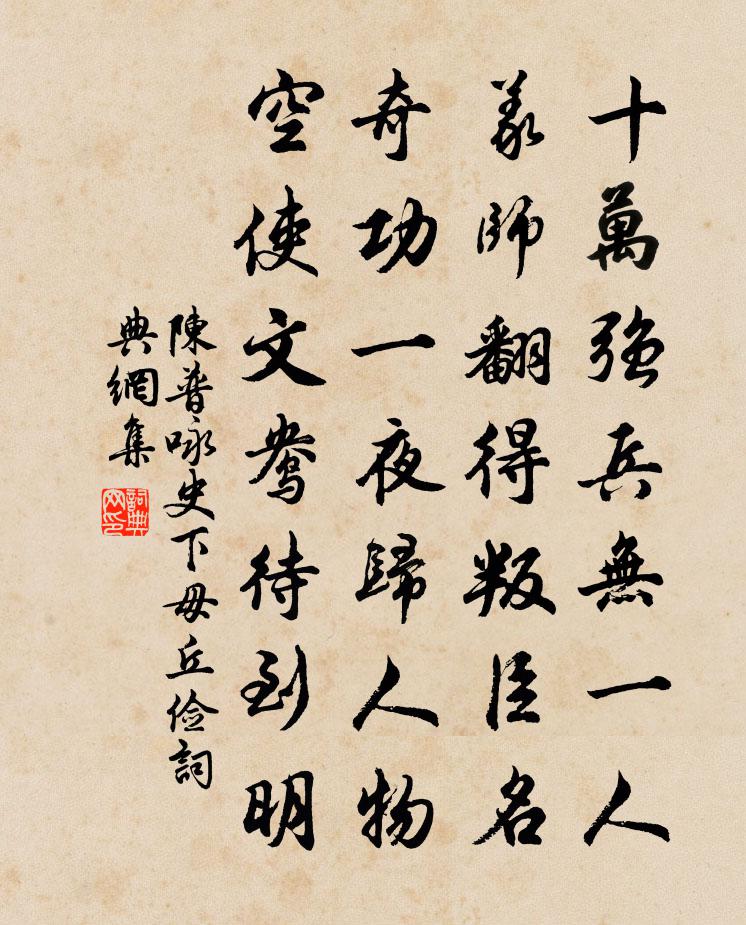 十萬強兵無一人
義師翻得叛臣名
奇功一夜歸人物
空使文鴦待到明
陳普咏史下毋丘儉詞
典網集
詞典网印